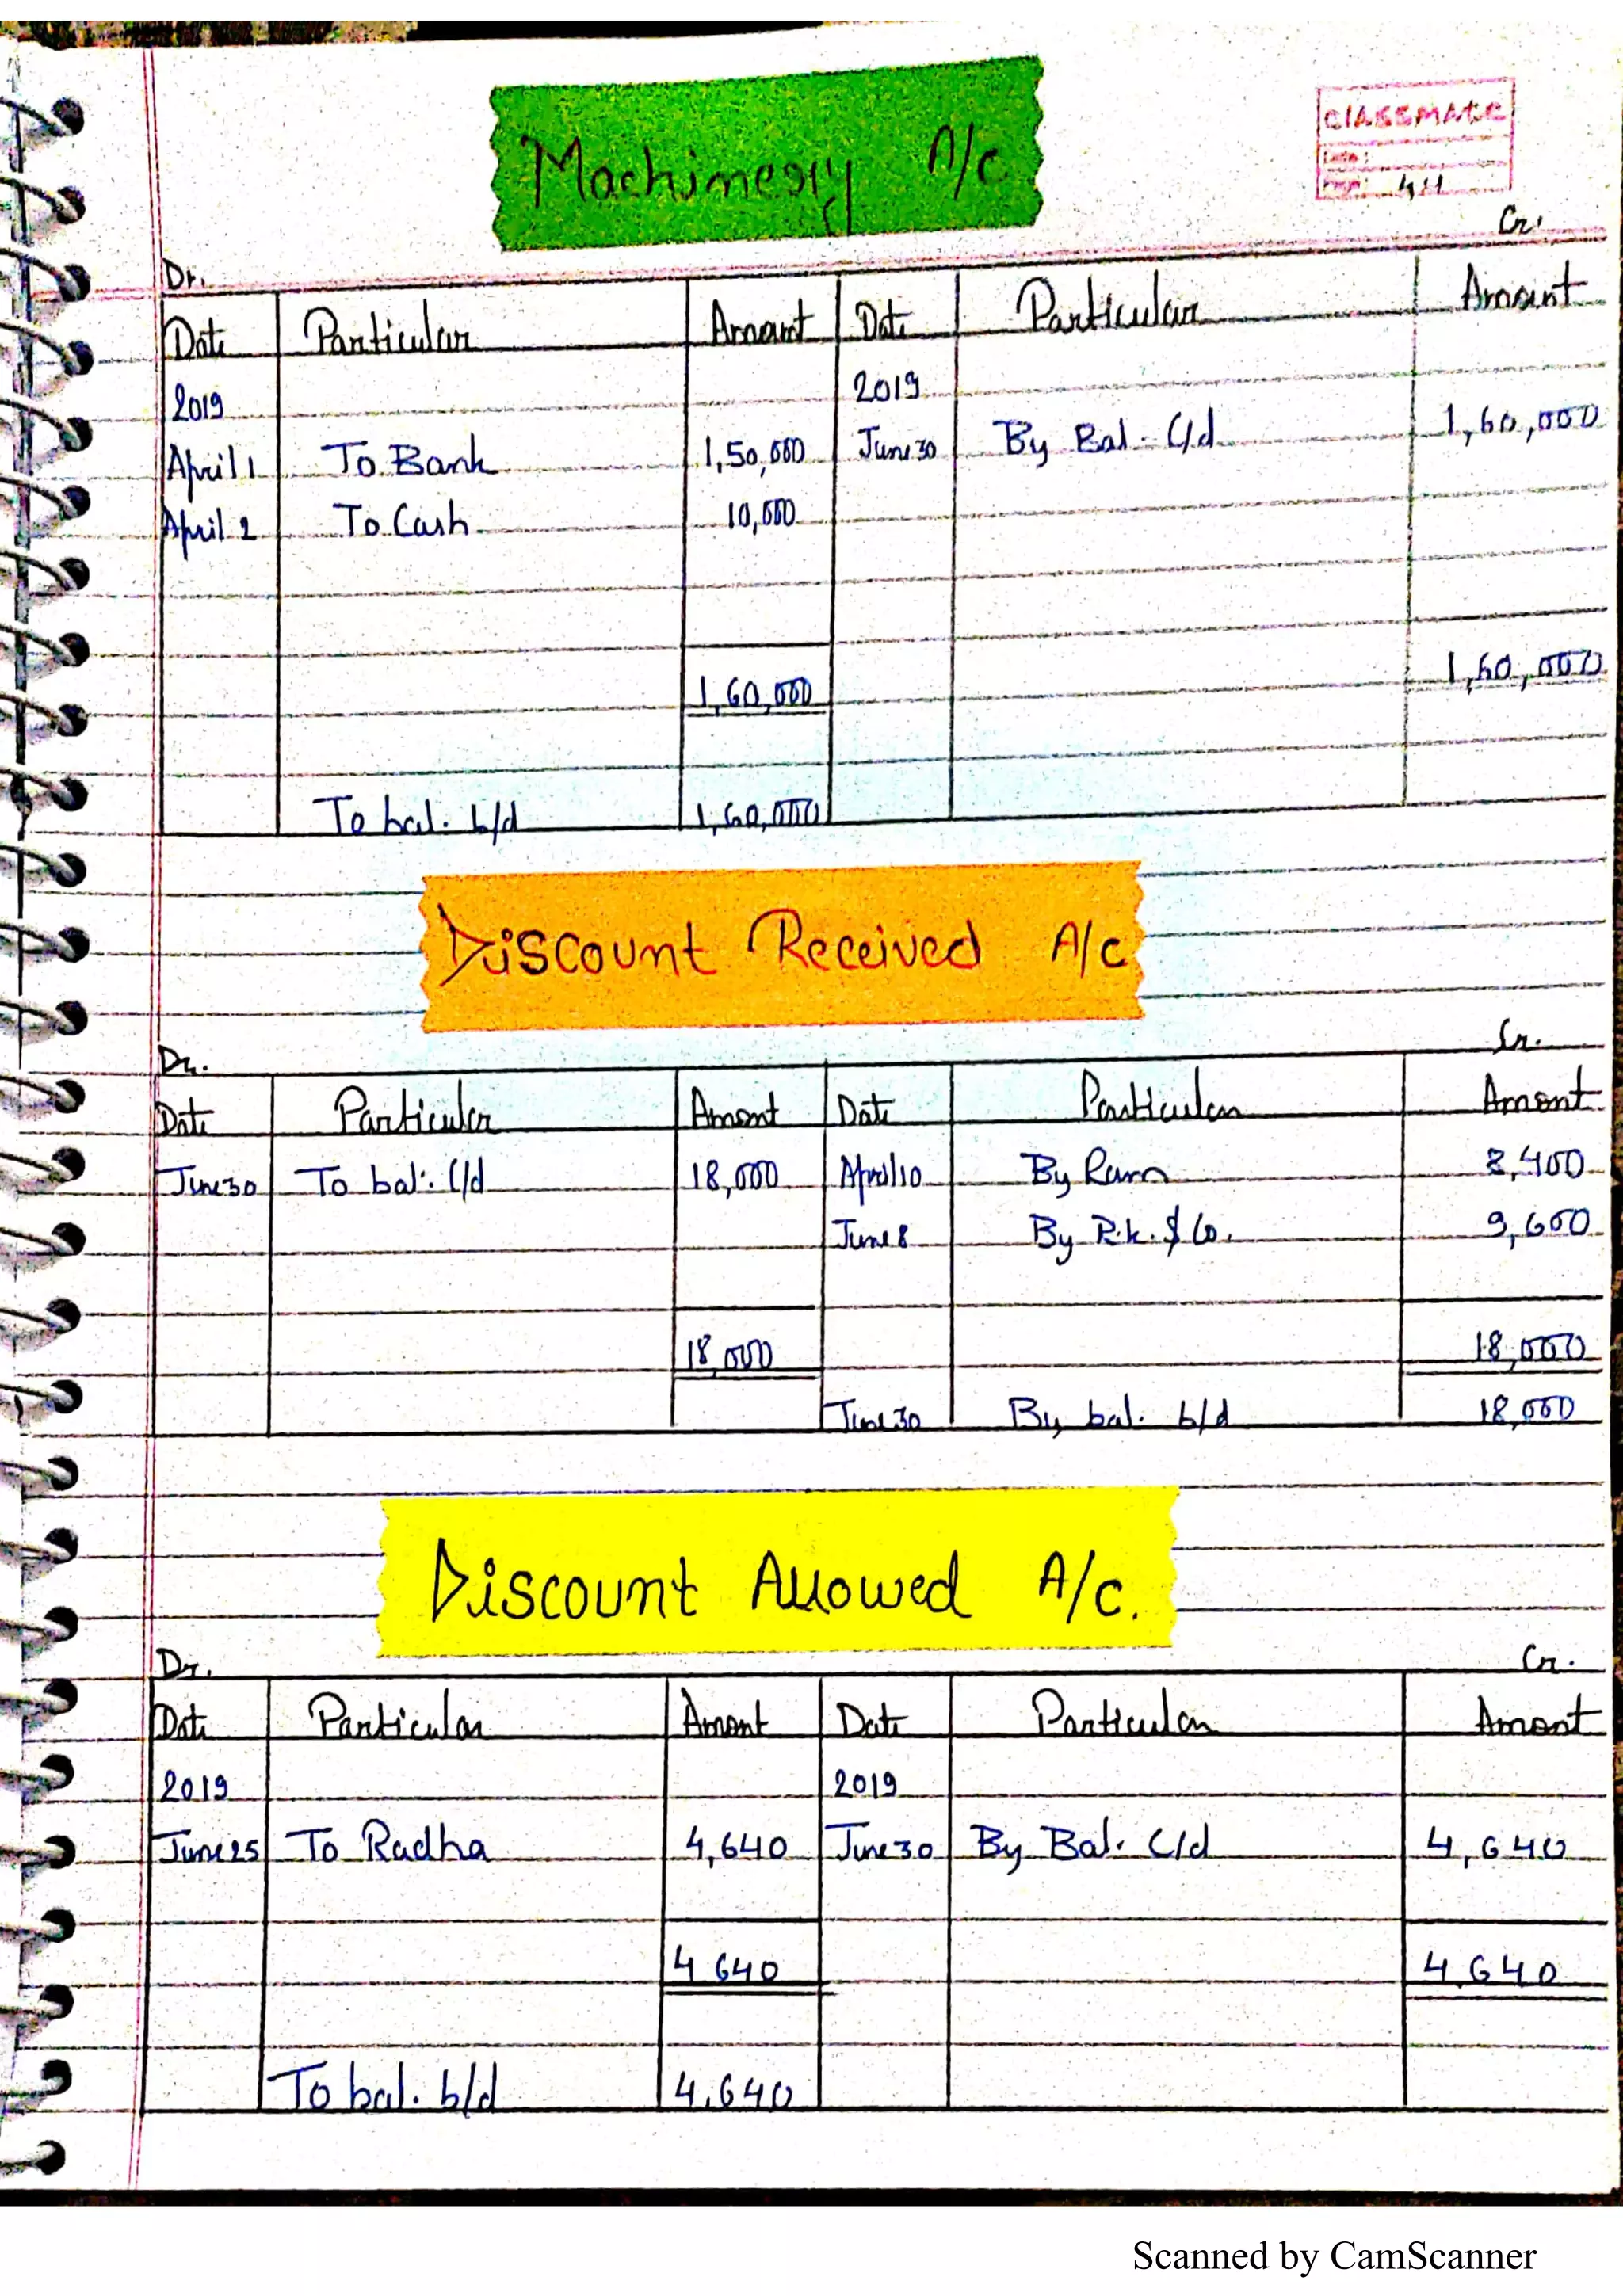 Machinery A/c
CLASSMATE
Date :
Page:
Dr. Cr.
Date Particular Amount Date Particular Amount
2019 2019
April 1 To Bank 1,50,000 June 30 By Bal. C/d 1,60,000
April 2 To Cash 10,000
1,60,000 1,60,000
To bal. b/d 1,60,000
Discount Received A/c
Dr. Cr.
Date Particular Amount Date Particular Amount
June 30 To bal. C/d 18,000 April 10 By Ram 8,400
June 8 By R.k. & Co. 9,600
18,000 18,000
June 30 By bal. b/d 18,000
Discount Allowed A/c.
Dr. Cr.
Date Particular Amount Date Particular Amount
2019 2019
June 25 To Radha 4,640 June 30 By Bal. C/d 4,640
4640 4,640
To bal. b/d 4,640
Scanned by CamScanner